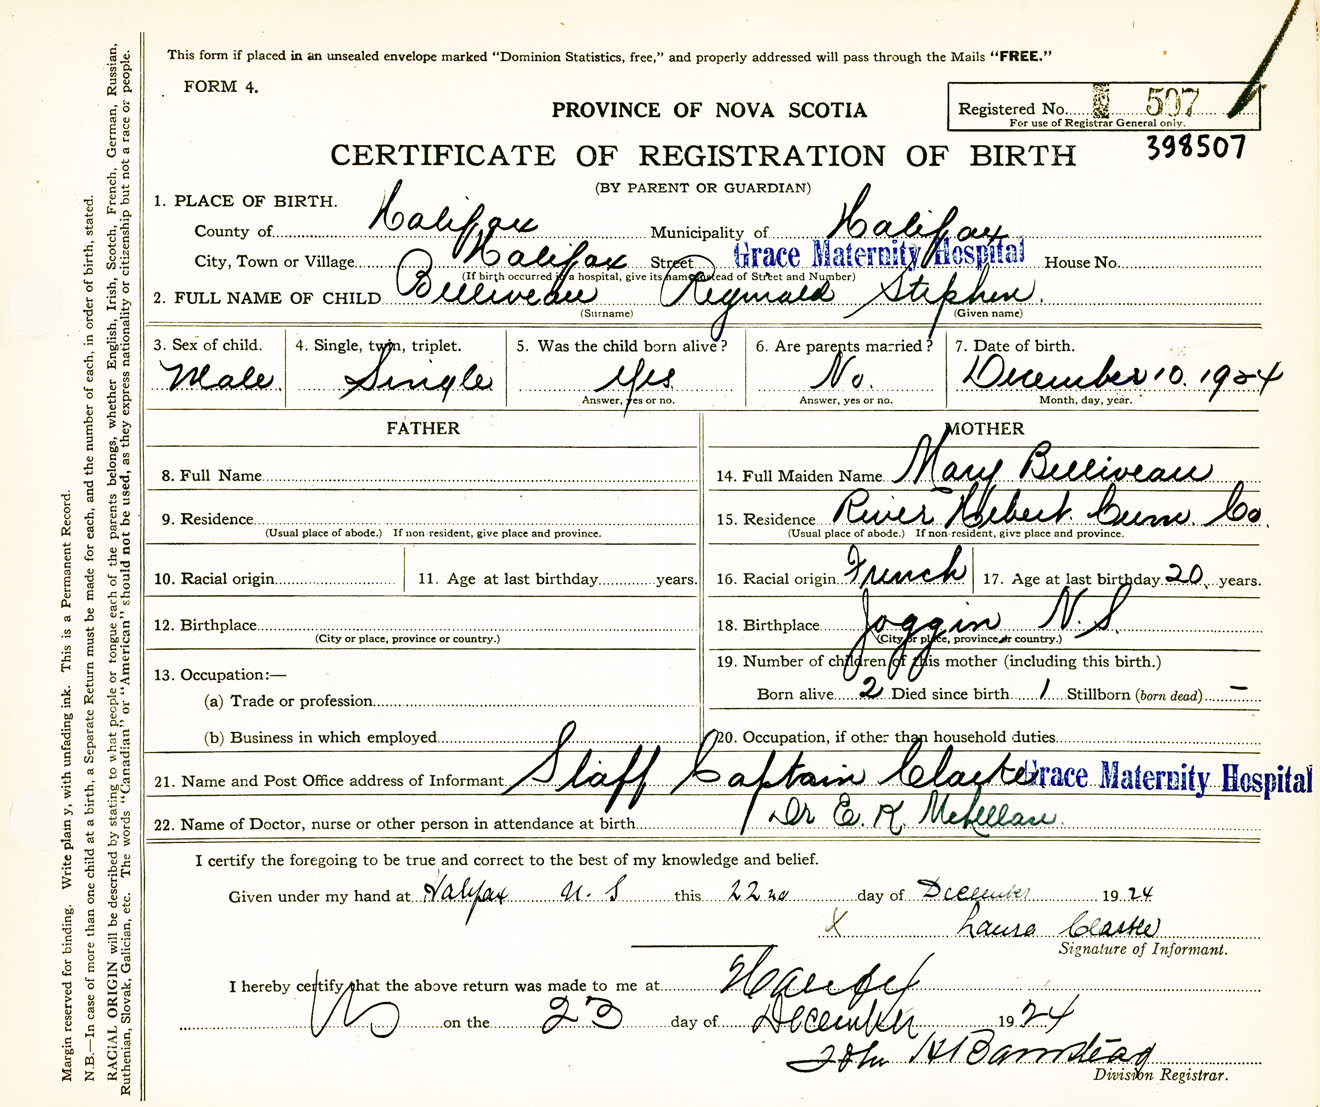 This form if placed in an unsealed envelope marked “Dominion Statistics, free,” and properly addressed will pass through the Mails “FREE.”
FORM 4.
PROVINCE OF NOVA SCOTIA
Registered No. 507
For use of Registrar General only.
398507
CERTIFICATE OF REGISTRATION OF BIRTH
(BY PARENT OR GUARDIAN)
1. PLACE OF BIRTH.
County of Halifax Municipality of Halifax
City, Town or Village Halifax Street Grace Maternity Hospital House No.
(If birth occurred in a hospital, give its name instead of Street and Number)
2. FULL NAME OF CHILD Belliveau Reginald Stephen.
(Surname) (Given name)
3. Sex of child. 4. Single, twin, triplet. 5. Was the child born alive? 6. Are parents married? 7. Date of birth.
Male. Single Yes No. December 10. 1924
Answer, yes or no. Answer, yes or no. Month, day, year.
FATHER MOTHER
8. Full Name 14. Full Maiden Name Mary Belliveau
9. Residence 15. Residence River Hebert. Cum. Co.
(Usual place of abode.) If non-resident, give place and province. (Usual place of abode.) If non-resident, give place and province.
10. Racial origin 11. Age at last birthday years. 16. Racial origin French 17. Age at last birthday 20 years.
12. Birthplace 18. Birthplace Joggin N.S.
(City or place, province or country.) (City or place, province or country.)
13. Occupation:— 19. Number of children of this mother (including this birth.)
(a) Trade or profession Born alive 2 Died since birth 1 Stillborn (born dead) —
(b) Business in which employed 20. Occupation, if other than household duties
21. Name and Post Office address of Informant Staff Captain Clarke Grace Maternity Hospital
22. Name of Doctor, nurse or other person in attendance at birth Dr E. K. McLellan.
I certify the foregoing to be true and correct to the best of my knowledge and belief.
Given under my hand at Halifax N.S this 22nd day of December 1924
X Laura Clarke
Signature of Informant.
I hereby certify that the above return was made to me at Halifax
NS on the 23 day of December 1924
John H Barnstead
Division Registrar.
Margin reserved for binding. Write plain y, with unfading ink. This is a Permanent Record.
N.B.—In case of more than one child at a birth, a Separate Return must be made for each, and the number of each, in order of birth, stated.
RACIAL ORIGIN will be described by stating to what people or tongue each of the parents belongs, whether English, Irish, Scotch, French, German, Russian,
Ruthenian, Slovak, Galician, etc. The words “Canadian” or “American” should not be used, as they express nationality or citizenship but not a race or people.